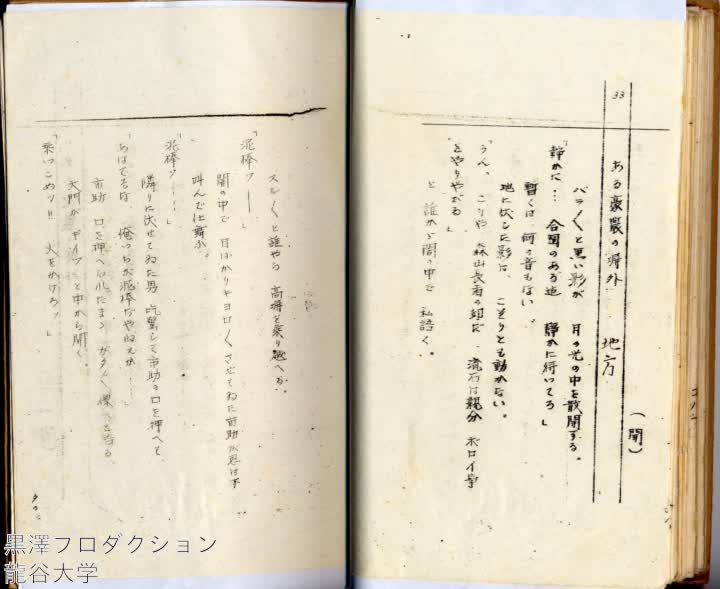 33
ある豪農の塀外 地方 (闇)
バラ／＼と黒い影が 月の光の中を散開する。
「静かに… 合図のある迄 静かに待いてろ」
暫くは 何の音もない
地に伏した影は、こそりとも動かない。
「うん、こりや 森山長者の邸だ 流石は親分 ボロイ事
をやりやがる」
と 誰かゞ闇の中で 私語く。
スル／＼と誰やら 高塀を乗り越へる。
「泥棒ッ ――」
闇の中で 目ばかりキヨロ／＼させてゐた市助が思はず
叫んで仕舞ふ。
「泥棒ッ…… 」
隣りに伏せてゐた男 吃驚して市助の口を押へて
「あはてるな 俺つちが泥棒ぢやねえか……」
市助 口を押へられたまゝ ガタ／＼ と
大門が ギイツ と中から開く。
「乗つこめッ!! 火をかけろッ」
黒澤プロダクション
龍谷大学